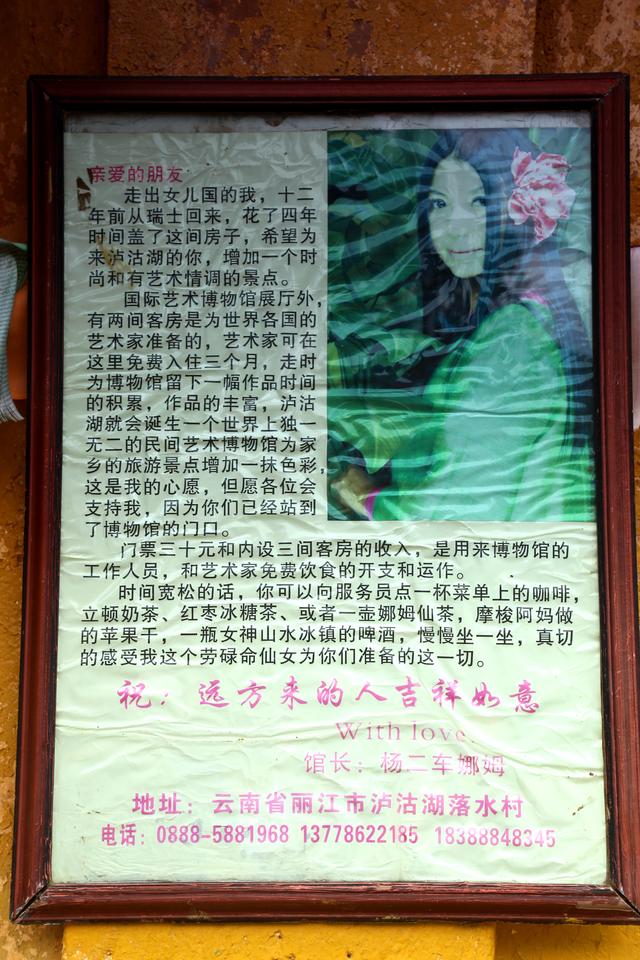 亲爱的朋友
走出女儿国的我，十二
年前从瑞士回来，花了四年
时间盖了这间房子，希望为
来泸沽湖的你，增加一个时
尚和有艺术情调的景点。
国际艺术博物馆展厅外，
有两间客房是为世界各国的
艺术家准备的，艺术家可在
这里免费入住三个月，走时
为博物馆留下一幅作品时间
的积累，作品的丰富，泸沽
湖就会诞生一个世界上独一
无二的民间艺术博物馆为家
乡的旅游景点增加一抹色彩，
这是我的心愿，但愿各位会
支持我，因为你们已经站到
了博物馆的门口。
门票三十元和内设三间客房的收入，是用来博物馆的
工作人员，和艺术家免费饮食的开支和运作。
时间宽松的话，你可以向服务员点一杯菜单上的咖啡，
立顿奶茶、红枣冰糖茶、或者一壶娜姆仙茶，摩梭阿妈做
的苹果干，一瓶女神山水冰镇的啤酒，慢慢坐一坐，真切
的感受我这个劳碌命仙女为你们准备的这一切。
祝：远方来的人吉祥如意
With love
馆长：杨二车娜姆
地址：云南省丽江市泸沽湖落水村
电话：0888-5881968 13778622185 18388848345